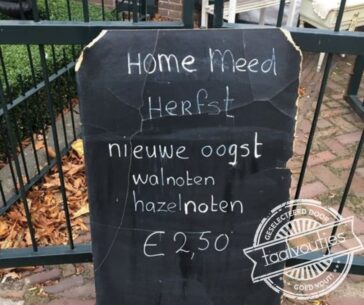 Home Meed
Herfst
nieuwe oogst
walnoten
hazelnoten
€ 2,50
GESELECTEERD DOOR
taalvoutjes
GOED VOUT!